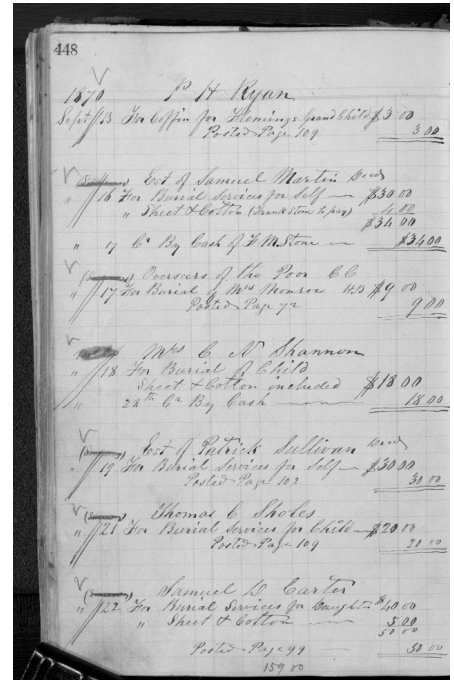 448
1870 Jas H Ryan
Sept 13 For Coffin for Flemings Grand Child $3 00
Posted Page 109 3 00
Est of Samuel Martin Decd
" 16 For Burial Services for Self — $30 00
" Sheet & Cotton (Frank Stone to pay) 4 00
$34 00
" 17 Cr By Cash of F M Stone — $34 00
Overseers of the Poor C C
" 17 For Burial of Mrs Monroe $9 00
Posted Page 72 9 00
Mrs C N Shannon
" 18 For Burial of Child
Sheet & Cotton included $18 00
" 28th Cr By Cash — 18 00
Est of Patrick Sullivan Decd
" 19 For Burial Services for Self — $30 00
Posted Page 102 30 00
Thomas C Sholes
" 21 For Burial Services for Child — $20 00
Posted Page 109 20 00
Samuel D Carter
" 22 For Burial Services for Daughter $40 00
" Sheet & Cotton — 5 00
50 00
Posted Page 99 — 50 00
159 00